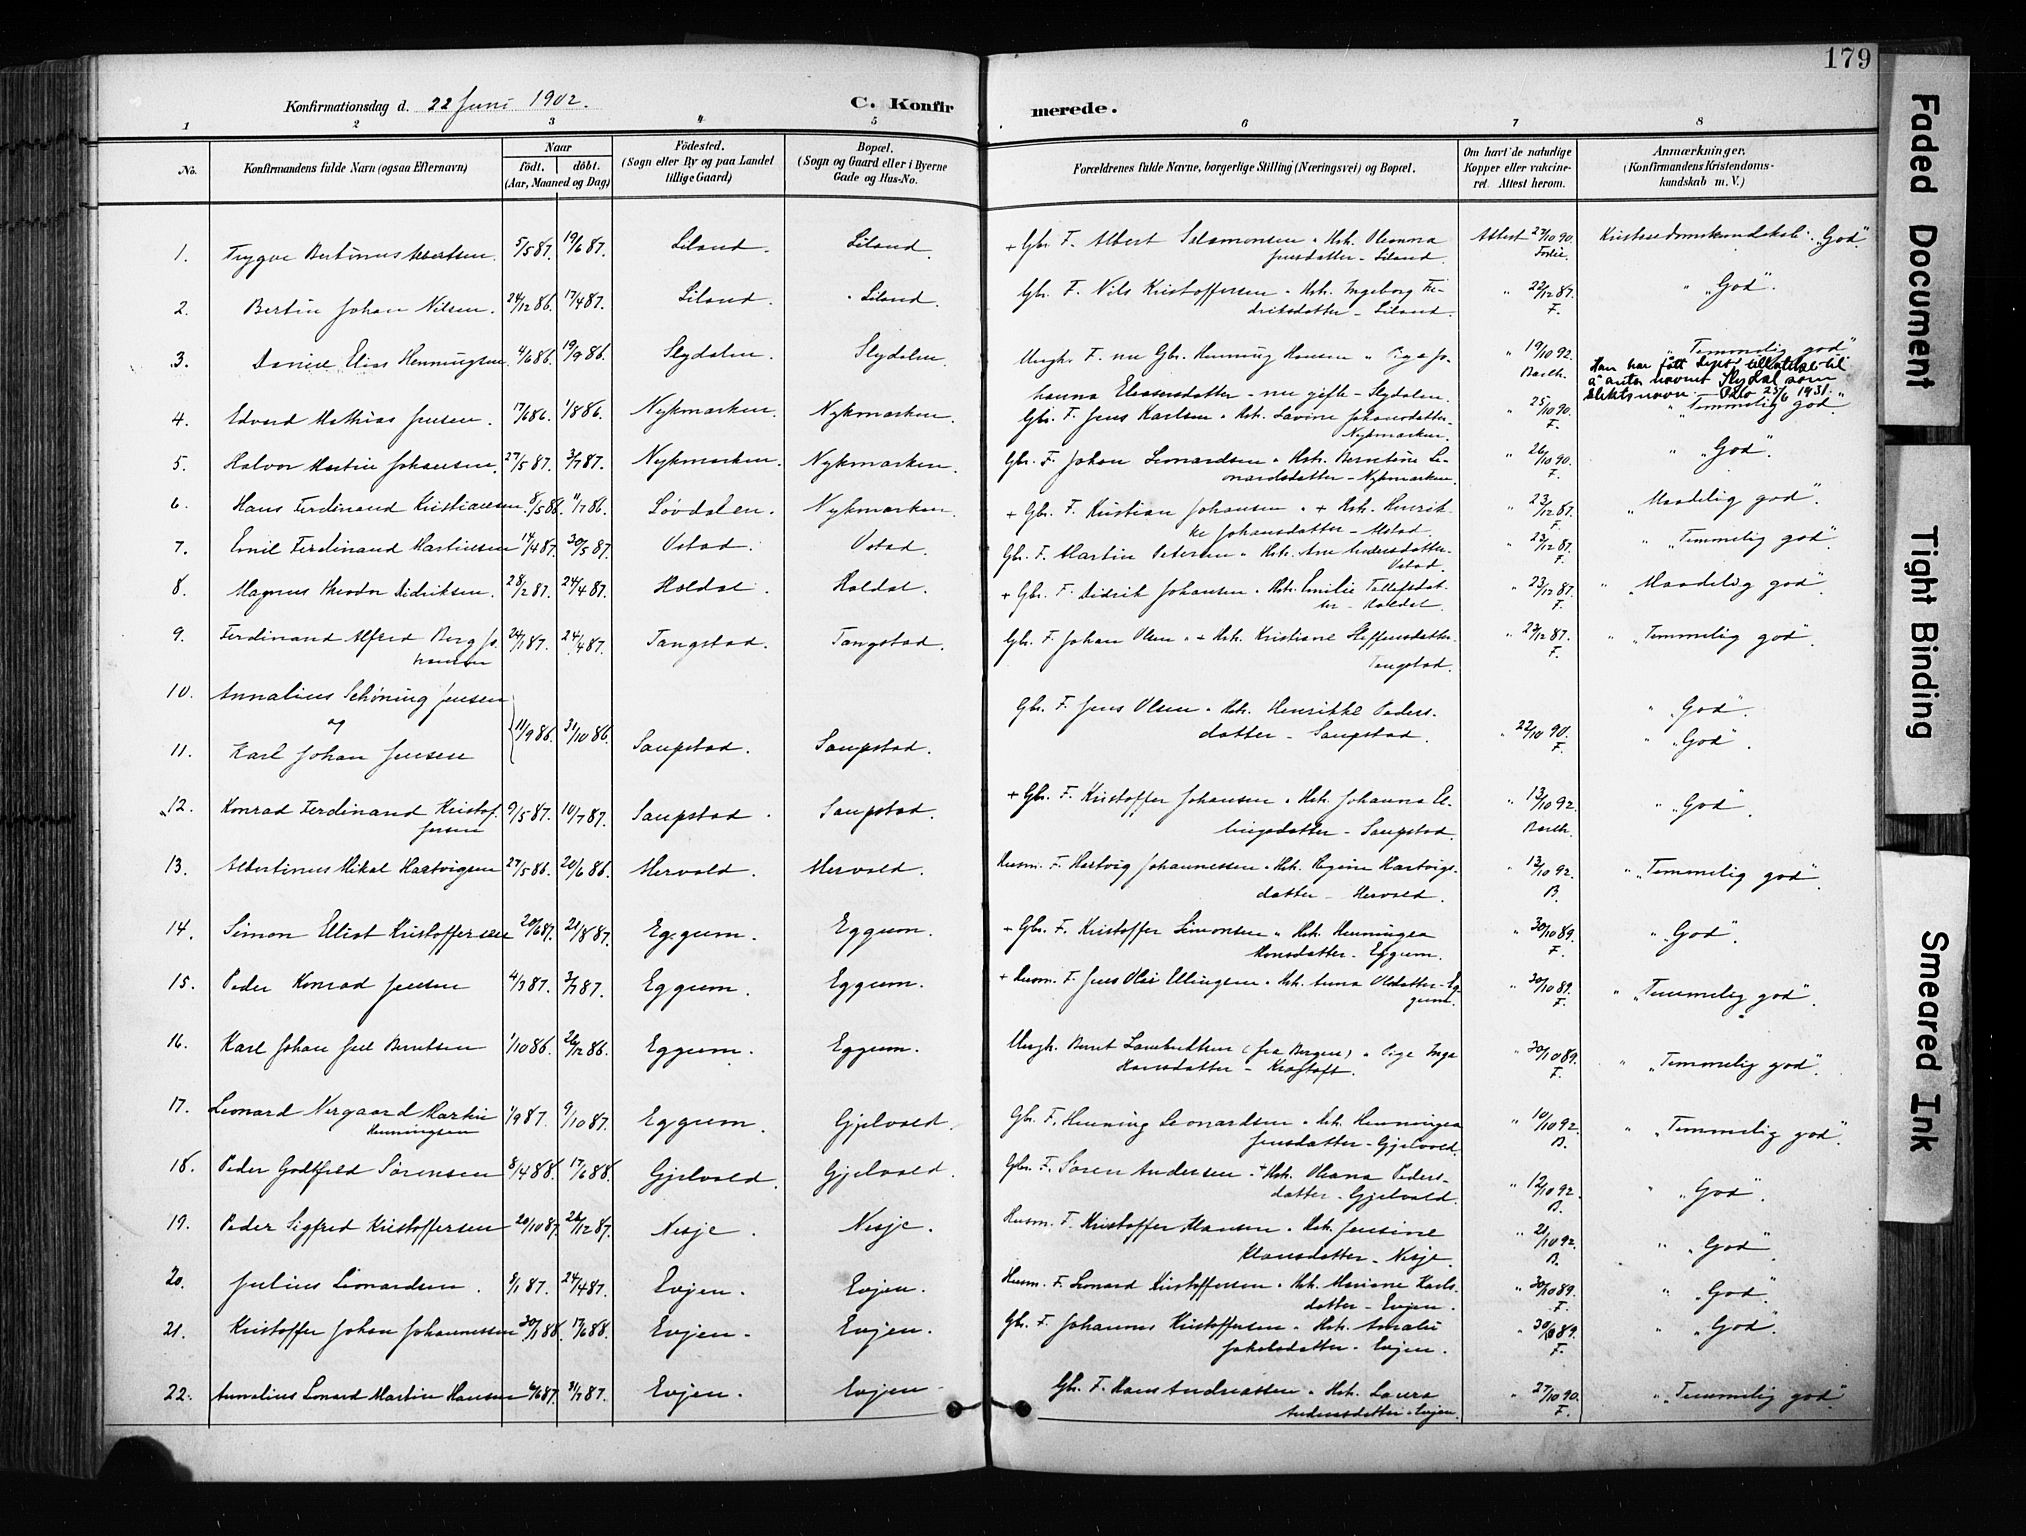 179
Konfirmationsdag d. 22 Juni 1902.
C. Konfirmerede.
1 2 3 4 5 6 7 8
No.
Konfirmandens fulde Navn (ogsaa Efternavn)
Naar
født. døbt.
(Aar, Maaned og Dag)
Fødested.
(Sogn eller By og paa Landet
tillige Gaard)
Bopæl.
(Sogn og Gaard eller i Byerne
Gade og Hus-No.
Forældrenes fulde Navne, borgerlige Stilling (Næringsvei) og Bopæl.
Om havt de naturlige
Kopper eller vakcine-
ret. Attest herom.
Anmærkninger,
(Konfirmandens Kristendoms-
kundskab m. V.)
1. Trygve Bertinus Albertsen. 5/5 87. 19/6 87. Liland. Liland. + Gbr. F. Albert Salamonsen " Hst. Olemma Attest 27/10 90. Kristendomskundskab: "God"
Jensdatter – Liland.
2. Bertin Johan Nilsen. 24/12 86. 17/4 87. Liland. Liland. Gbr. F. Nils Kristoffersen " Hst. Ingeborg Fre- " 22/12 87. " "God".
driksdatter – Liland. F.
3. Daniel Elias Henningsen. 4/6 86. 19/9 86. Slydalen. Slydalen. Ungk. F. nu Gbr. Henning Hansen " Pige Jo- " 19/10 92. " "Temmelig god"
hanna Eleasersdatter – nu gifte – Slydalen. Barth.
Han har fått Dept.s tillatelse til
å anta navnet Slydal som
slektsnavn. – Oslo 25/6 1931.
4. Edvard Mathias Jensen. 17/6 86. 1/8 86. Nykmarken. Nykmarken. Gbr. F. Jens Karlsen " Hst. Lavine Johansdatter – " 25/10 90. " "Temmelig god"
Nykmarken. F.
5. Halvor Martin Johansen. 27/5 87. 3/7 87. Nykmarken. Nykmarken. Gbr. F. Johan Leonardsen " Hst. Berntine Le- " 26/10 90. " "God".
onardsdatter – Nykmarken. F.
6. Hans Ferdinand Kristiansen 8/5 86. 11/7 86. Løvdalen. Nykmarken. + Gbr. F. Kristian Johansen " + Hst. Henrik- " 23/12 87. "Maadelig god".
ke Johansdatter – Ustad. F.
7. Emil Ferdinand Martinsen 14/4 87. 30/5 87. Ustad. Ustad. Gbr. F. Martin Petersen " Hst. Ane Andersdatter – " 23/12 87. " "Temmelig god".
Ustad. F.
8. Magnus Theodor Didriksen. 28/2 87. 24/4 87. Holdal. Holdal. + Gbr. F. Didrik Johansen " Hst. Emilie Tollefsdat- " 23/12 87. " "Maadelig god".
ter – Holdal. F.
9. Ferdinand Alfred Berg Jo- 24/1 87. 24/4 87. Tangstad. Tangstad. Gbr. F. Johan Olsen " + Hst. Kristiane Steffensdatter. " 23/12 87. " "Temmelig god".
hansen Tangstad. F.
10. Annalius Schøning Jensen Gbr. F. Jens Olsen " Hst. Henrikke Peders- " "God".
og 11/9 86. 31/10 86. datter – Saupstad. " 22/10 90.
11. Karl Johan Jensen Saupstad. Saupstad. F. " "God".
12. Konrad Ferdinand Kristof- 9/5 87. 10/7 87. Saupstad. Saupstad. + Gbr. F. Kristoffer Johansen " Hst. Johanna El- " 13/10 92. " "God".
fersen lingsdatter – Saupstad. Barth.
13. Albertinus Mikal Hartvigsen 27/5 86. 20/6 86. Mervold. Mervold. Husm. F. Hartvig Johannessen " Hst. Regine Hartvigs- " 13/10 92. " "Temmelig god".
datter – Mervold. B.
14. Simon Elliot Kristoffersen 20/6 87. 21/8 87. Eggum. Eggum. + Gbr. F. Kristoffer Simonsen " Hst. Henningea " 30/10 89. " "God".
Monsdatter – Eggum. F.
15. Peder Konrad Jensen 4/3 87. 3/7 87. Eggum. Eggum. + Husm. F. Jens Olai Ellingsen " Hst. Anna Olsdatter – Eg- " 30/10 89. " "Temmelig god".
gum. F.
16. Karl Johan Juel Berntsen 1/10 86. 26/12 86. Eggum. Eggum. Ungk. Bernt Lambrektsen (fra Bergen) " Pige Inga " 30/10 89. " "Temmelig god".
Hansdatter – Kraftoft. F.
17. Leonard Nergaard Martin 1/9 87. 9/10 87. Eggum. Gjelvold. Gbr. F. Henning Leonardsen " Hst. Henningea " 10/10 92. " "Temmelig god".
Henningsen Jensdatter – Gjelvold. B.
18. Peder Godtfred Sørensen 8/4 88. 17/6 88. Gjelvold. Gjelvold. Gbr. F. Søren Andersen " + Hst. Oleana Peders- " 12/10 92. " "God".
datter – Gjelvold. B.
19. Peder Sigfred Kristoffersen 20/10 87. 26/12 87. Nesje. Nesje. Husm. F. Kristoffer Hansen " Hst. Jensine " 21/10 92. " "God".
Klausdatter – Nesje. B.
20. Julius Leonardsen. 8/1 87. 24/4 87. Evjen. Evjen. Husm. F. Leonard Kristoffersen " Hst. Mariane Karls- " 30/10 89. " "God".
datter – Evjen. F.
21. Kristoffer Johan Johannessen 30/1 88. 17/6 88. Evjen. Evjen. Gbr. F. Johannes Kristoffersen " Hst. Amalie " 30/10 89. " "God".
Jakobsdatter – Evjen. F.
22. Annalius Leonard Martin Hansen 6/6 87. 31/7 87. Evjen. Evjen. Gbr. F. Hans Andreassen " Hst. Laura " 27/10 90. " "Temmelig god".
Andersdatter – Evjen. F.
Faded Document
Tight Binding
Smeared Ink